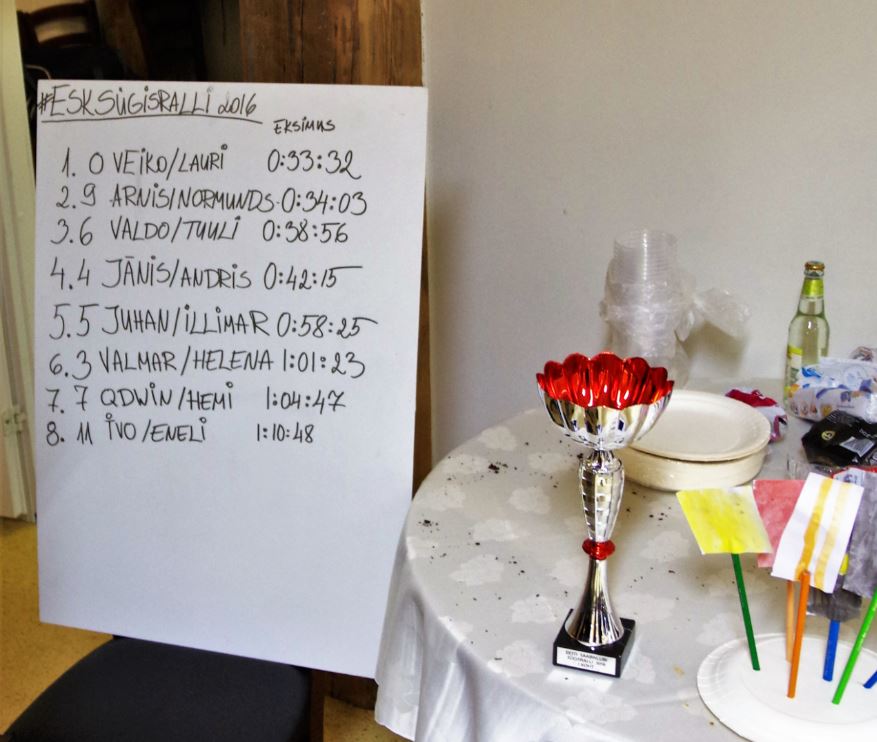 #ESKSÜGISRALLI 2016
EKSIMUS
1. 0 VEIKO/LAURI 0:33:32
2. 9 ARNIS/NORMUNDS 0:34:03
3. 6 VALDO/TUULI 0:38:56
4. 4 JĀNIS/ANDRIS 0:42:15
5. 5 JUHAN/ILLIMAR 0:58:25
6. 3 VALMAR/HELENA 1:01:23
7. 7 QDWIN/HEMI 1:04:47
8. 11 IVO/ENELI 1:10:48
EESTI SAABIKLUBI
SÜGISRALLI 2016
I KOHT